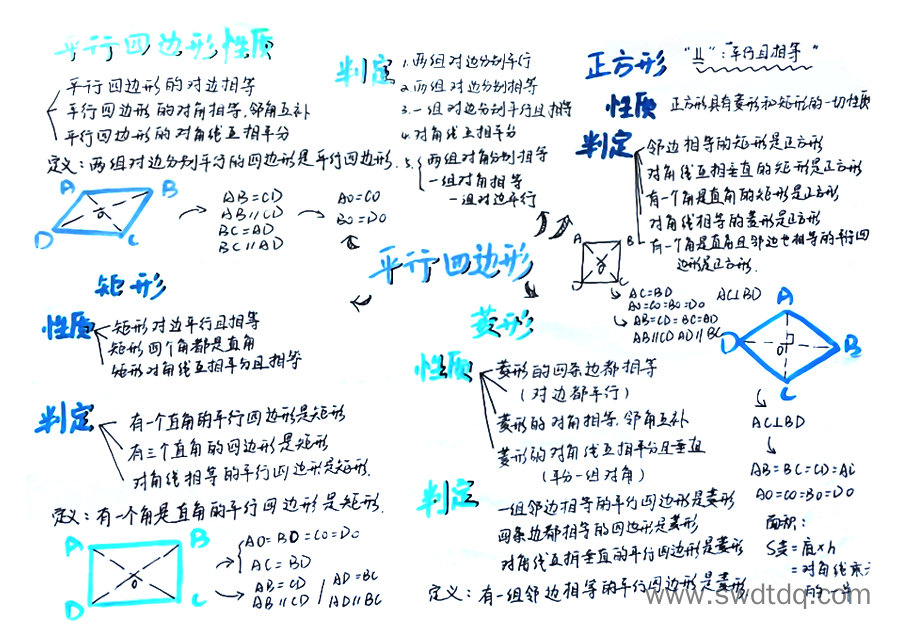 平行四边形性质
平行四边形的对边相等
平行四边形的对角相等,邻角互补
平行四边形的对角线互相平分
定义:两组对边分别平行的四边形是平行四边形.
判定
1.两组对边分别平行
2.两组对边分别相等
3.一组对边分别平行且相等
4.对角线互相平分
5.
两组对角分别相等
一组对角相等
一组对边平行
A B
O
D C
AB=CD
AB∥CD
BC=AD
BC∥AD
AO=CO
BO=DO
正方形
“⫫”:“平行且相等”
性质 正方形具有菱形和矩形的一切性质
判定
邻边相等的矩形是正方形
对角线互相垂直的矩形是正方形
有一个角是直角的矩形是正方形
对角线相等的菱形是正方形
有一个角是直角且邻边也相等的平行四
边形是正方形.
A B
O
D C
AC=BD AC⊥BD
AO=CO=BO=DO
AB=CD=BC=AD
AB∥CD AD∥BC
平行四边形
矩形
性质
矩形对边平行且相等
矩形四个角都是直角
矩形对角线互相平分且相等
判定
有一个直角的平行四边形是矩形
有三个直角的四边形是矩形
对角线相等的平行四边形是矩形.
定义:有一个角是直角的平行四边形是矩形.
A B
O
D C
AO=BD=CO=DO
AC=BD
AB=CD
AB∥CD
AD=BC
AD∥BC
菱形
性质
菱形的四条边都相等
(对边都平行)
菱形的对角相等,邻角互补
菱形的对角线互相平分且垂直
(平分一组对角)
判定
一组邻边相等的平行四边形是菱形
四条边都相等的四边形是菱形
对角线互相垂直的平行四边形是菱形
定义:有一组邻边相等的平行四边形是菱形
A
D O B
C
AC⊥BD
AB=BC=CD=AD
AO=CO=BO=DO
面积:
S菱=底×h
=对角线乘
的一半
www.swdtdq.com